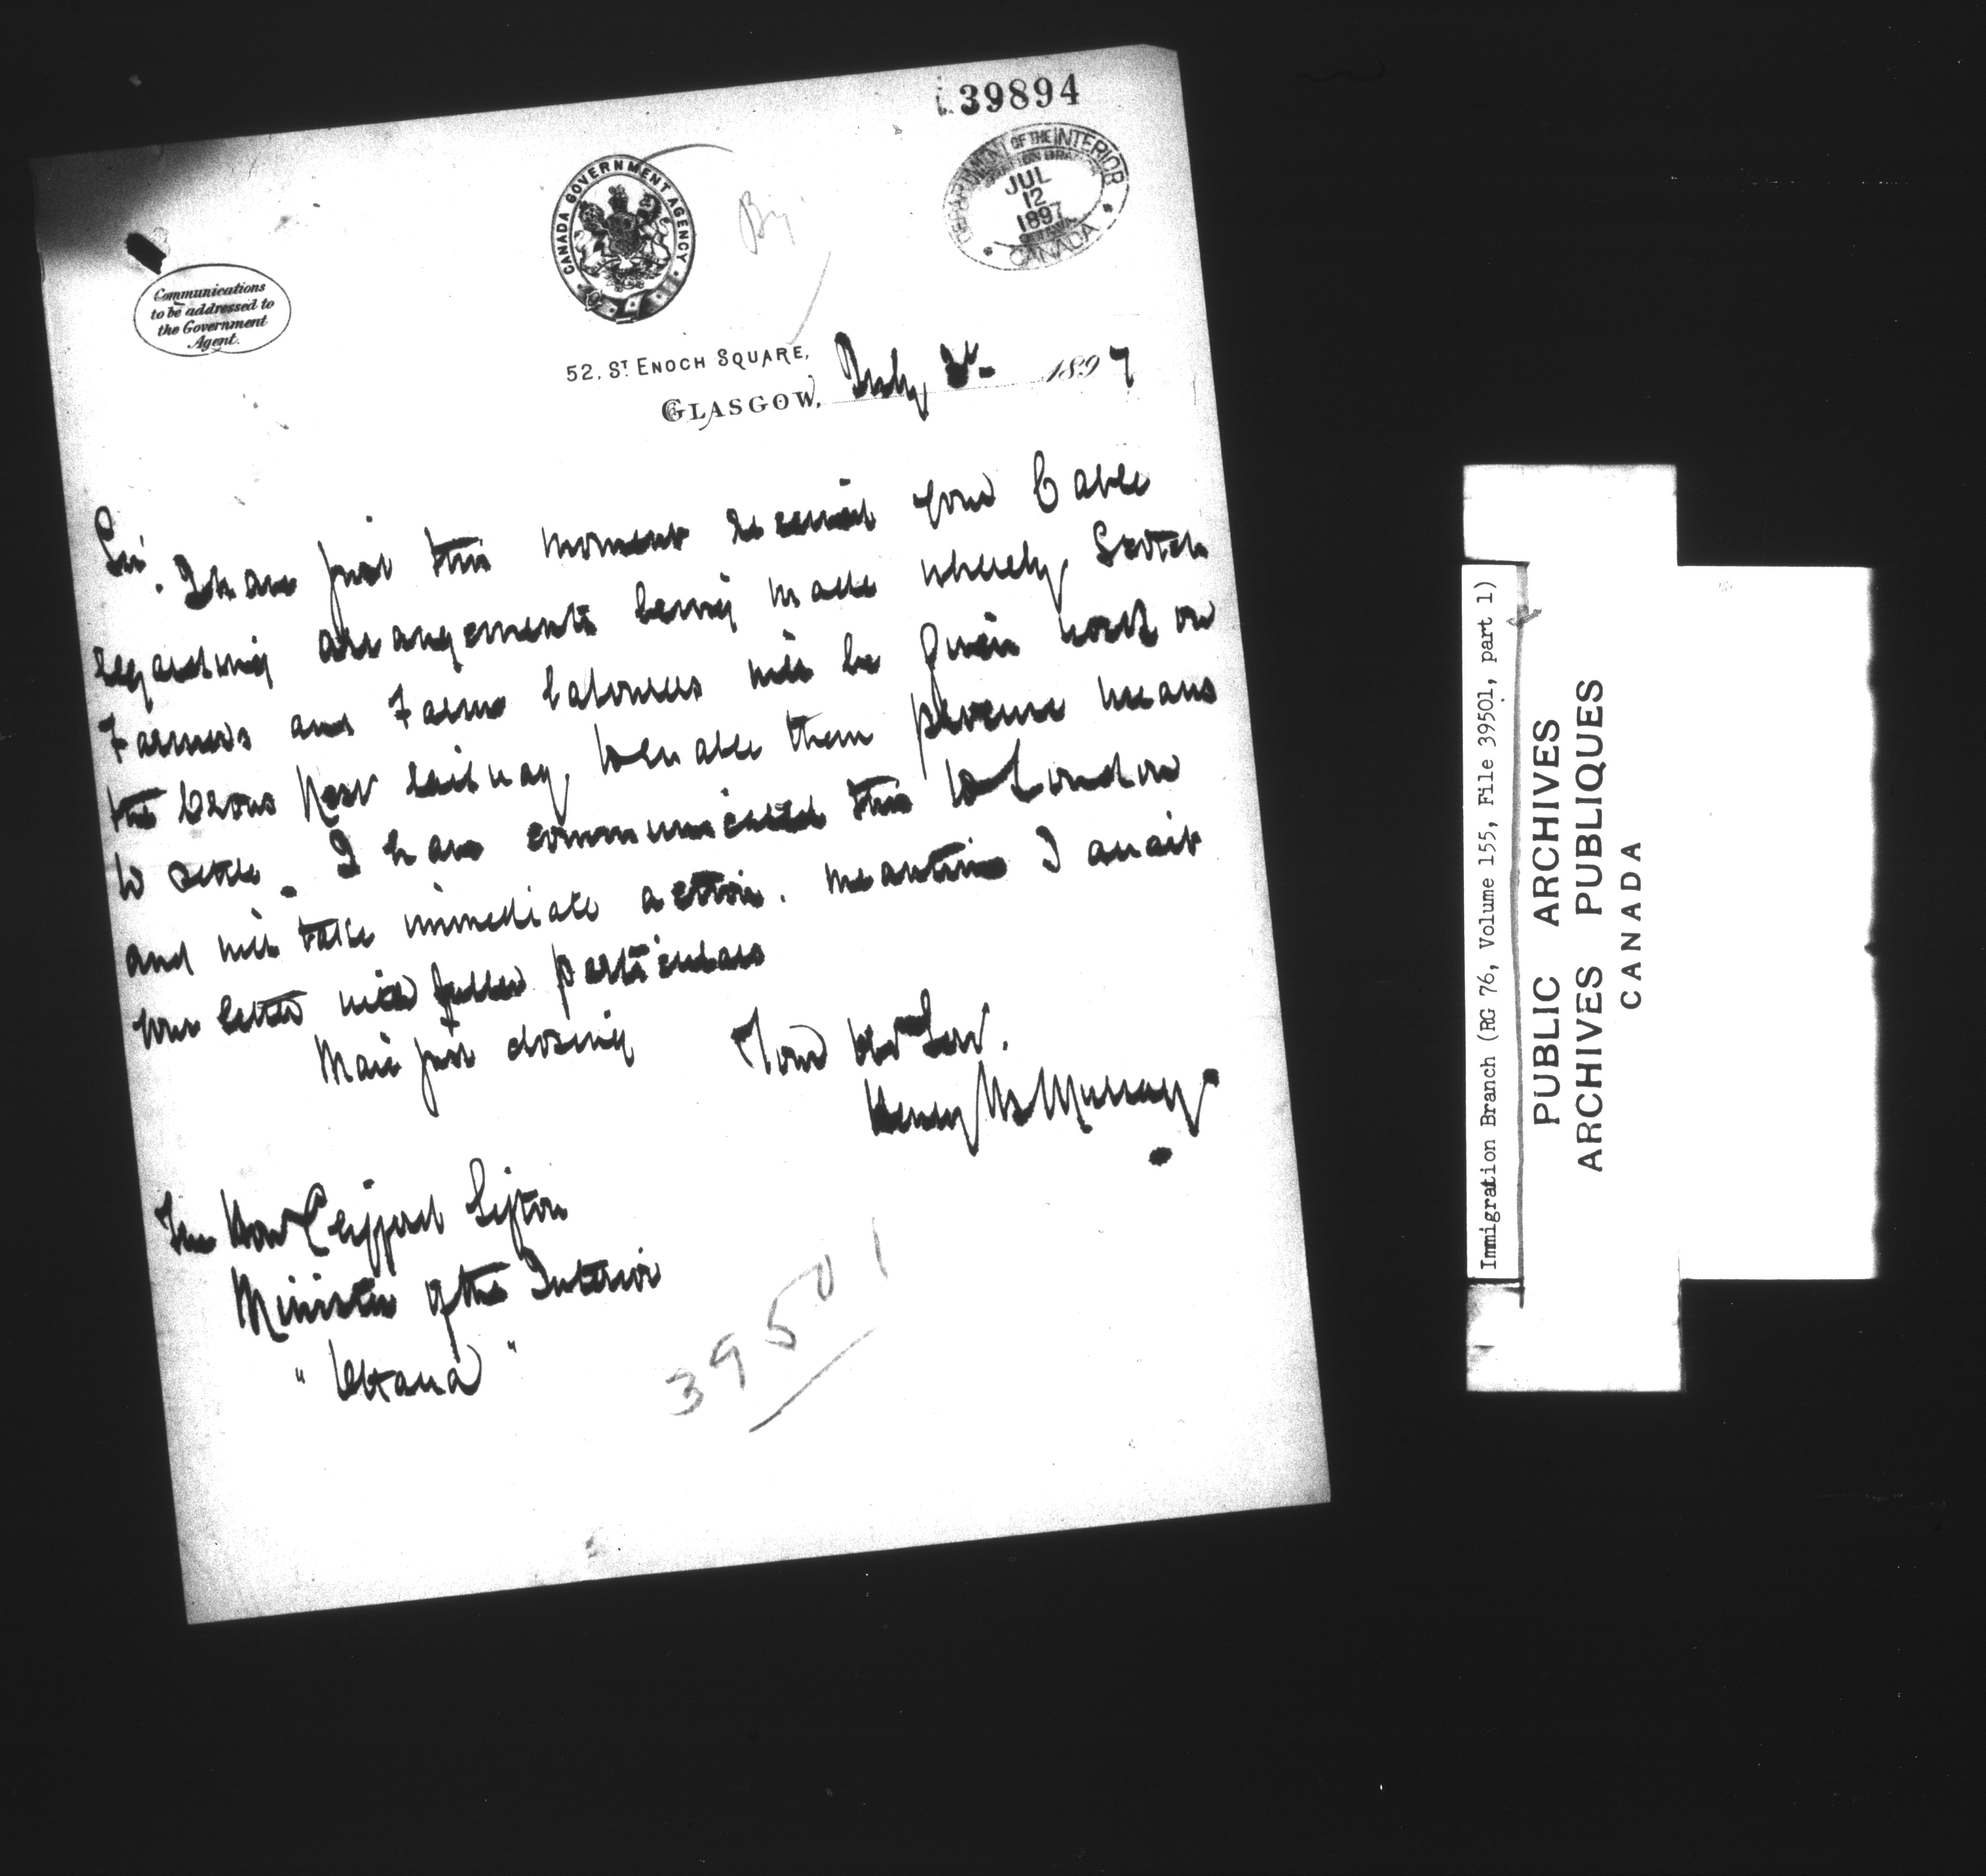 39894
DEPARTMENT OF THE INTERIOR
JUL
12
1897
CANADA
CANADA GOVERNMENT AGENCY
Communications
to be addressed to
the Government
Agent.
52, ST ENOCH SQUARE,
GLASGOW, July 1897
Sir. I have just this moment received your Cable
regarding arrangements being made whereby Scotch
Farmers and Farm labourers will be given work on
the Crows Nest railway, to enable them procure means
to settle. I have communicated this to London
and will take immediate action. Meantime I await
your letter with fuller particulars
Mail just closing Your Obt Servt.
Henry M Murray
The Hon Clifford Sifton
Minister of the Interior
"Ottawa"
39501
Immigration Branch (RG 76, Volume 155, File 39501, part 1)
PUBLIC ARCHIVES
ARCHIVES PUBLIQUES
CANADA